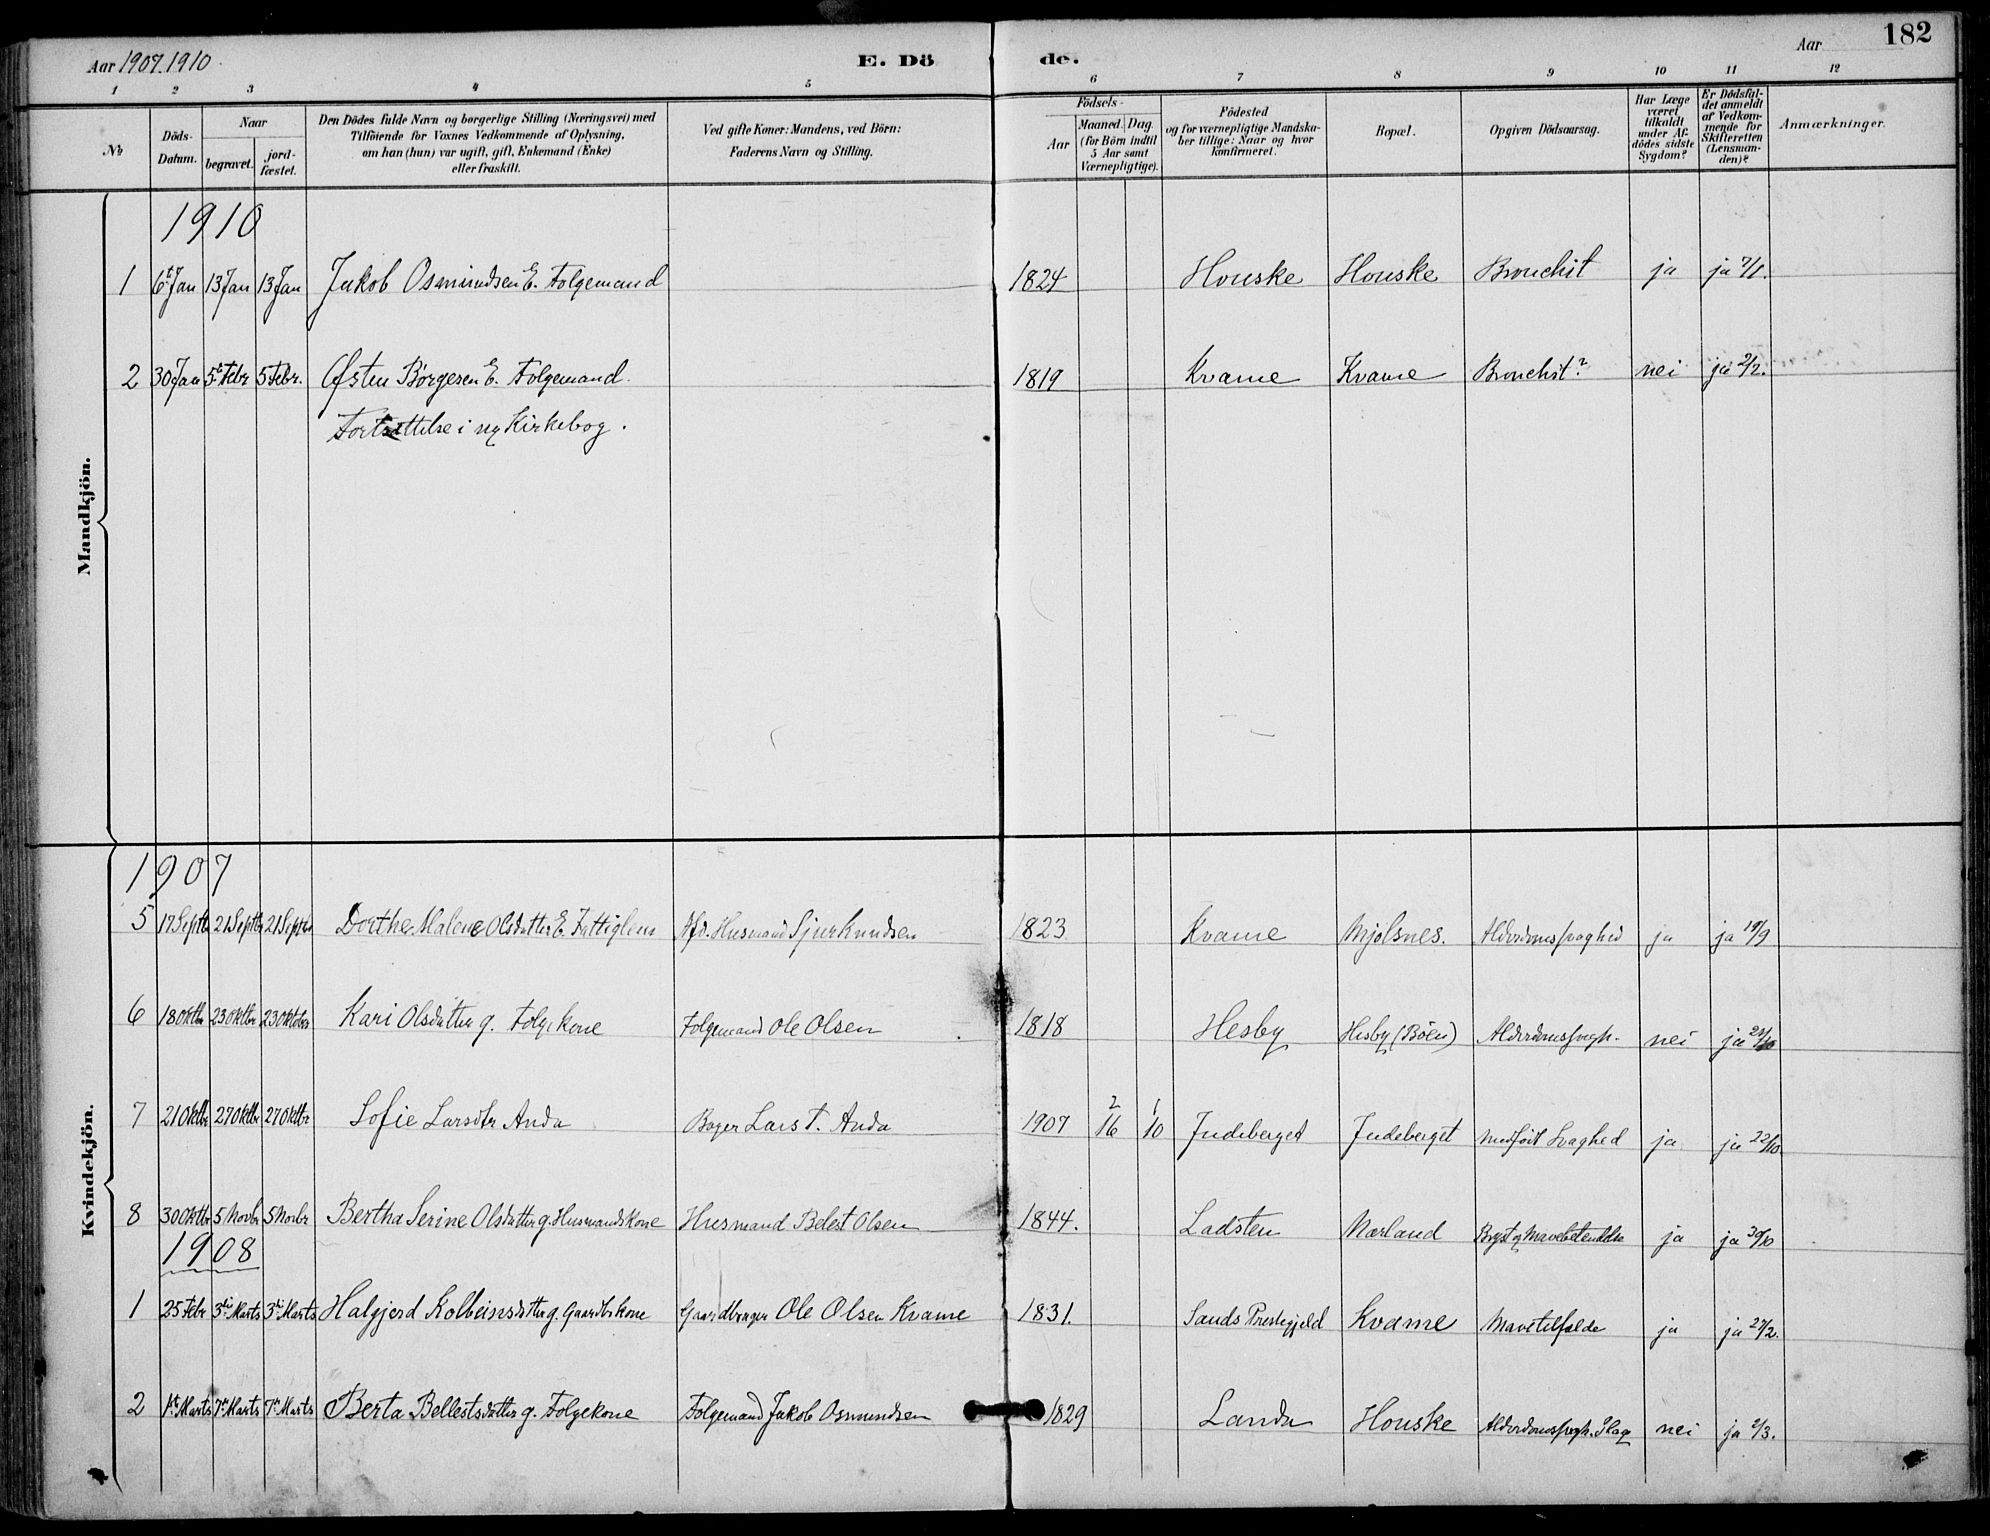 Aar 1907.1910
E. Dö
de.
Aar
182
1 2 3 4 5 6 7 8 9 10 11 12
No
Döds-Datum.
Naar
begravet.
jord-fæstet.
Den Dödes fulde Navn og borgerlige Stilling (Næringsvei) med
Tilföiende for Voxnes Vedkommende af Oplysning,
om han (hun) var ugift, gift, Enkemand (Enke)
eller fraskilt.
Ved gifte Koner: Mandens, ved Börn:
Faderens Navn og Stilling.
Födsels-
Aar
Maaned. Dag.
(for Börn indtil
5 Aar samt
Værnepligtige).
Födested
og for værnepligtige Mandska-
ber tillige: Naar og hvor
konfirmeret.
Bopæl.
Opgiven Dödsaarsag.
Har Læge
været
tilkaldt
under Af-
dödes sidste
Sygdom?
Er Dödsfal-
det anmeldt
af Vedkom-
mende for
Skifteretten
(Lensman-
den)?
Anmærkninger.
Mandkjön.
1910
1 6t Jan 13 Jan 13 Jan Jakob Osmundsen E. Folgemand 1824 Houske Houske Bronchit ja ja 7/1.
2 30 Jan 5t Febr 5 Febr. Østen Børgesen E. Folgemand. 1819 Kvame Kvame Bronchit? nei ja 2/2.
Fortsættelse i ny Kirkebog.
Kvindekjön.
1907
5 17 Septb 21 Septb 21 Septb Dorthe Malene Olsdatter E. Fattiglem Afd. Husmand Sjur Knudsen 1823 Kvame Mjølsnes. Alderdomssvaghed ja ja 19/9
6 18 Oktbr 23 Oktbr 23 Oktbr Kari Olsdatter g. Folgekone Folgemand Ole Olsen 1818 Hesby Hesby (Bøen) Alderdomssvagh. nei ja 21/10
7 21 Oktbr 27 Oktbr 27 Oktbr Sofie Larsdtr Anda Bager Lars T. Anda 1907 2/16 1/10 Judeberget Judeberget Medfødt Svaghed ja ja 22/10.
8 30 Oktbr 5 Novbr 5 Novbr Bertha Serine Olsdatter g. Husmandskone Husmand Belest Olsen 1844. Ladsten Nærland Bryst og Mavebetændelse ja ja 30/10
1908
1 25 Febr 3die Marts 3die Marts Halgjerd Kolbeinsdatter g. Gaardbr. kone Gaardbruger Ole Olsen Kvame 1831. Sands Prestegjeld Kvame Mavetilfælde ja ja 27/2.
2 1st Marts 7de Marts 7de Marts Berta Bellestsdatter g. Folgekone Folgemand Jakob Osmundsen 1829 Landa Houske Alderdomssvagh. Slag nei ja 2/3.